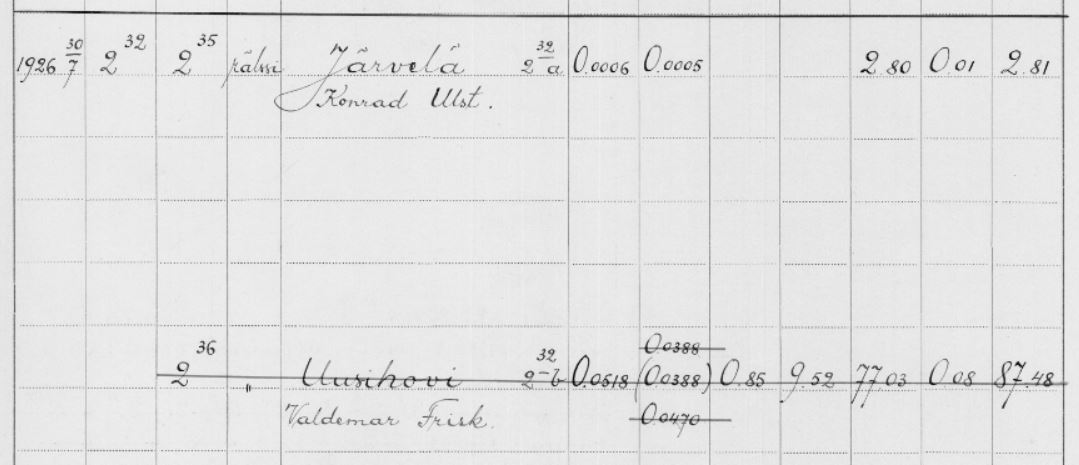 1926 30/7 2^32 2^35 rälssi Järvelä 2^32-a 0.0006 0.0005 2.80 0.01 2.81
Konrad Ulst.
0.0388
2^36 " Uusihovi 2^32-b 0.0518 (0.0388) 0.85 9.52 77.03 0.08 87.48
Valdemar Frisk. 0.0470